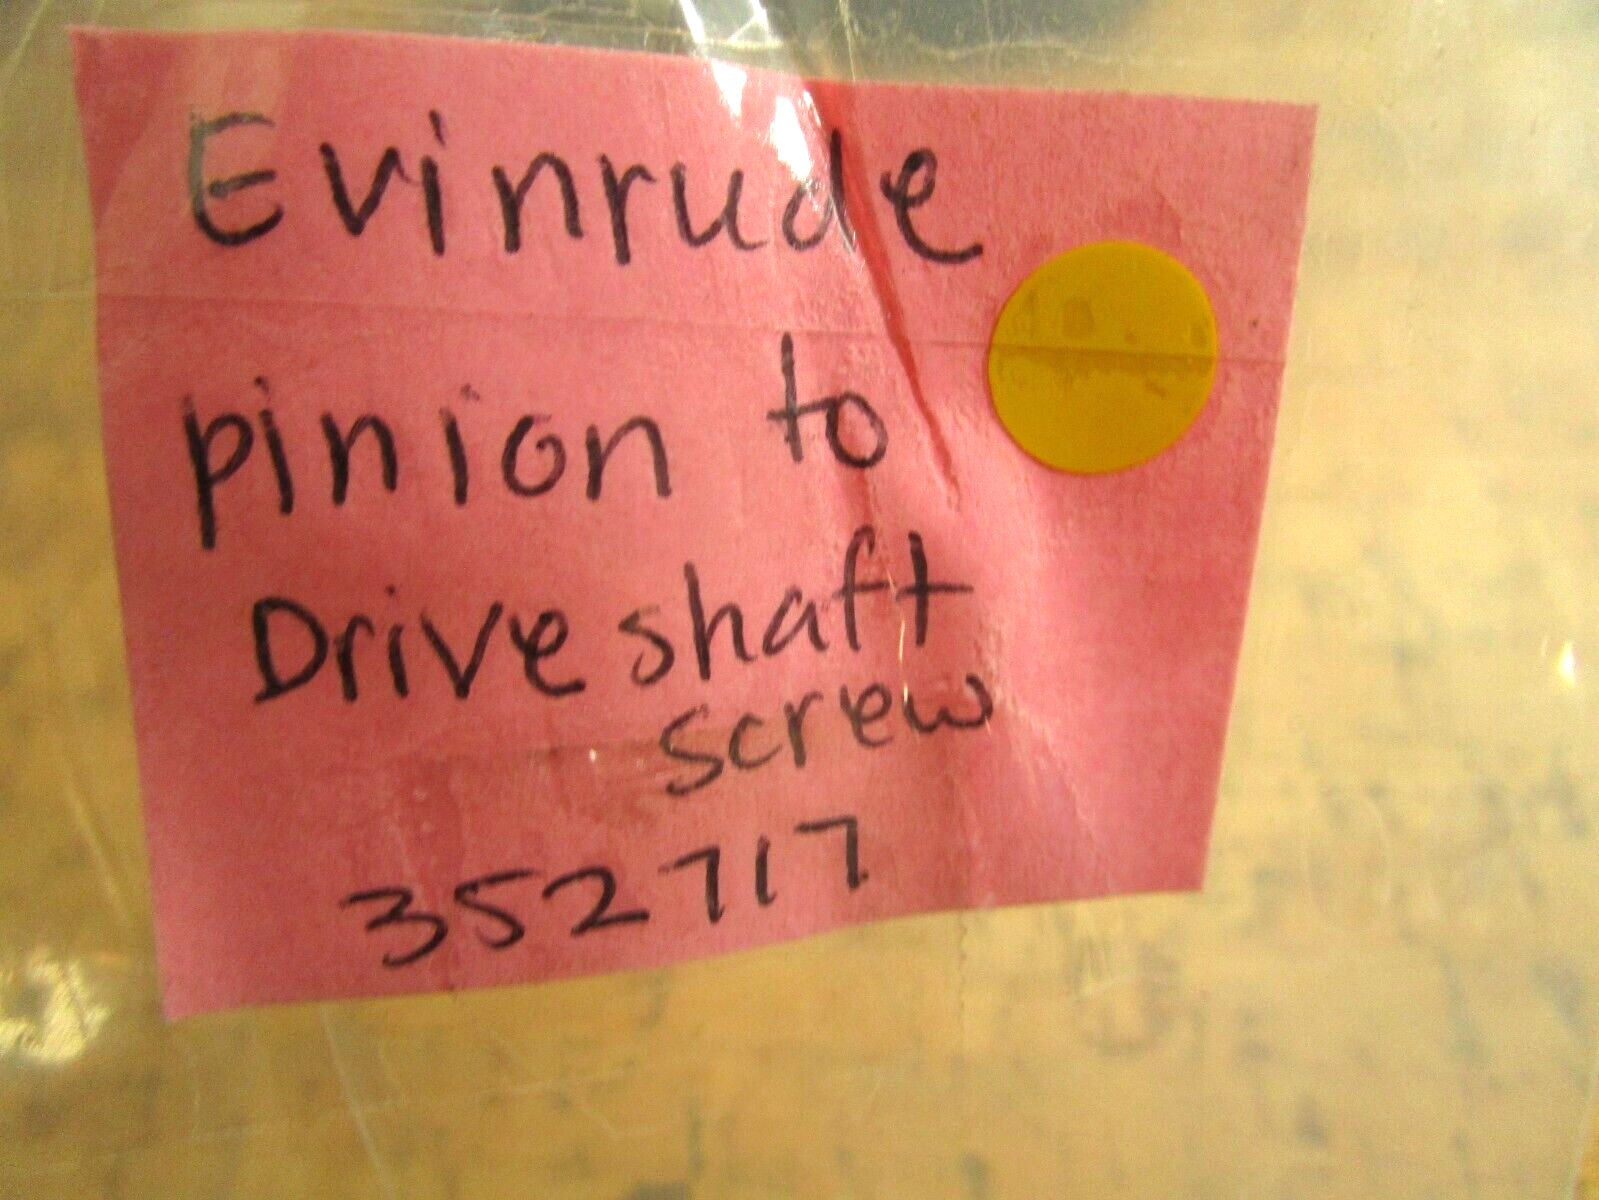 Evinrude
pinion to
Driveshaft
screw
352717